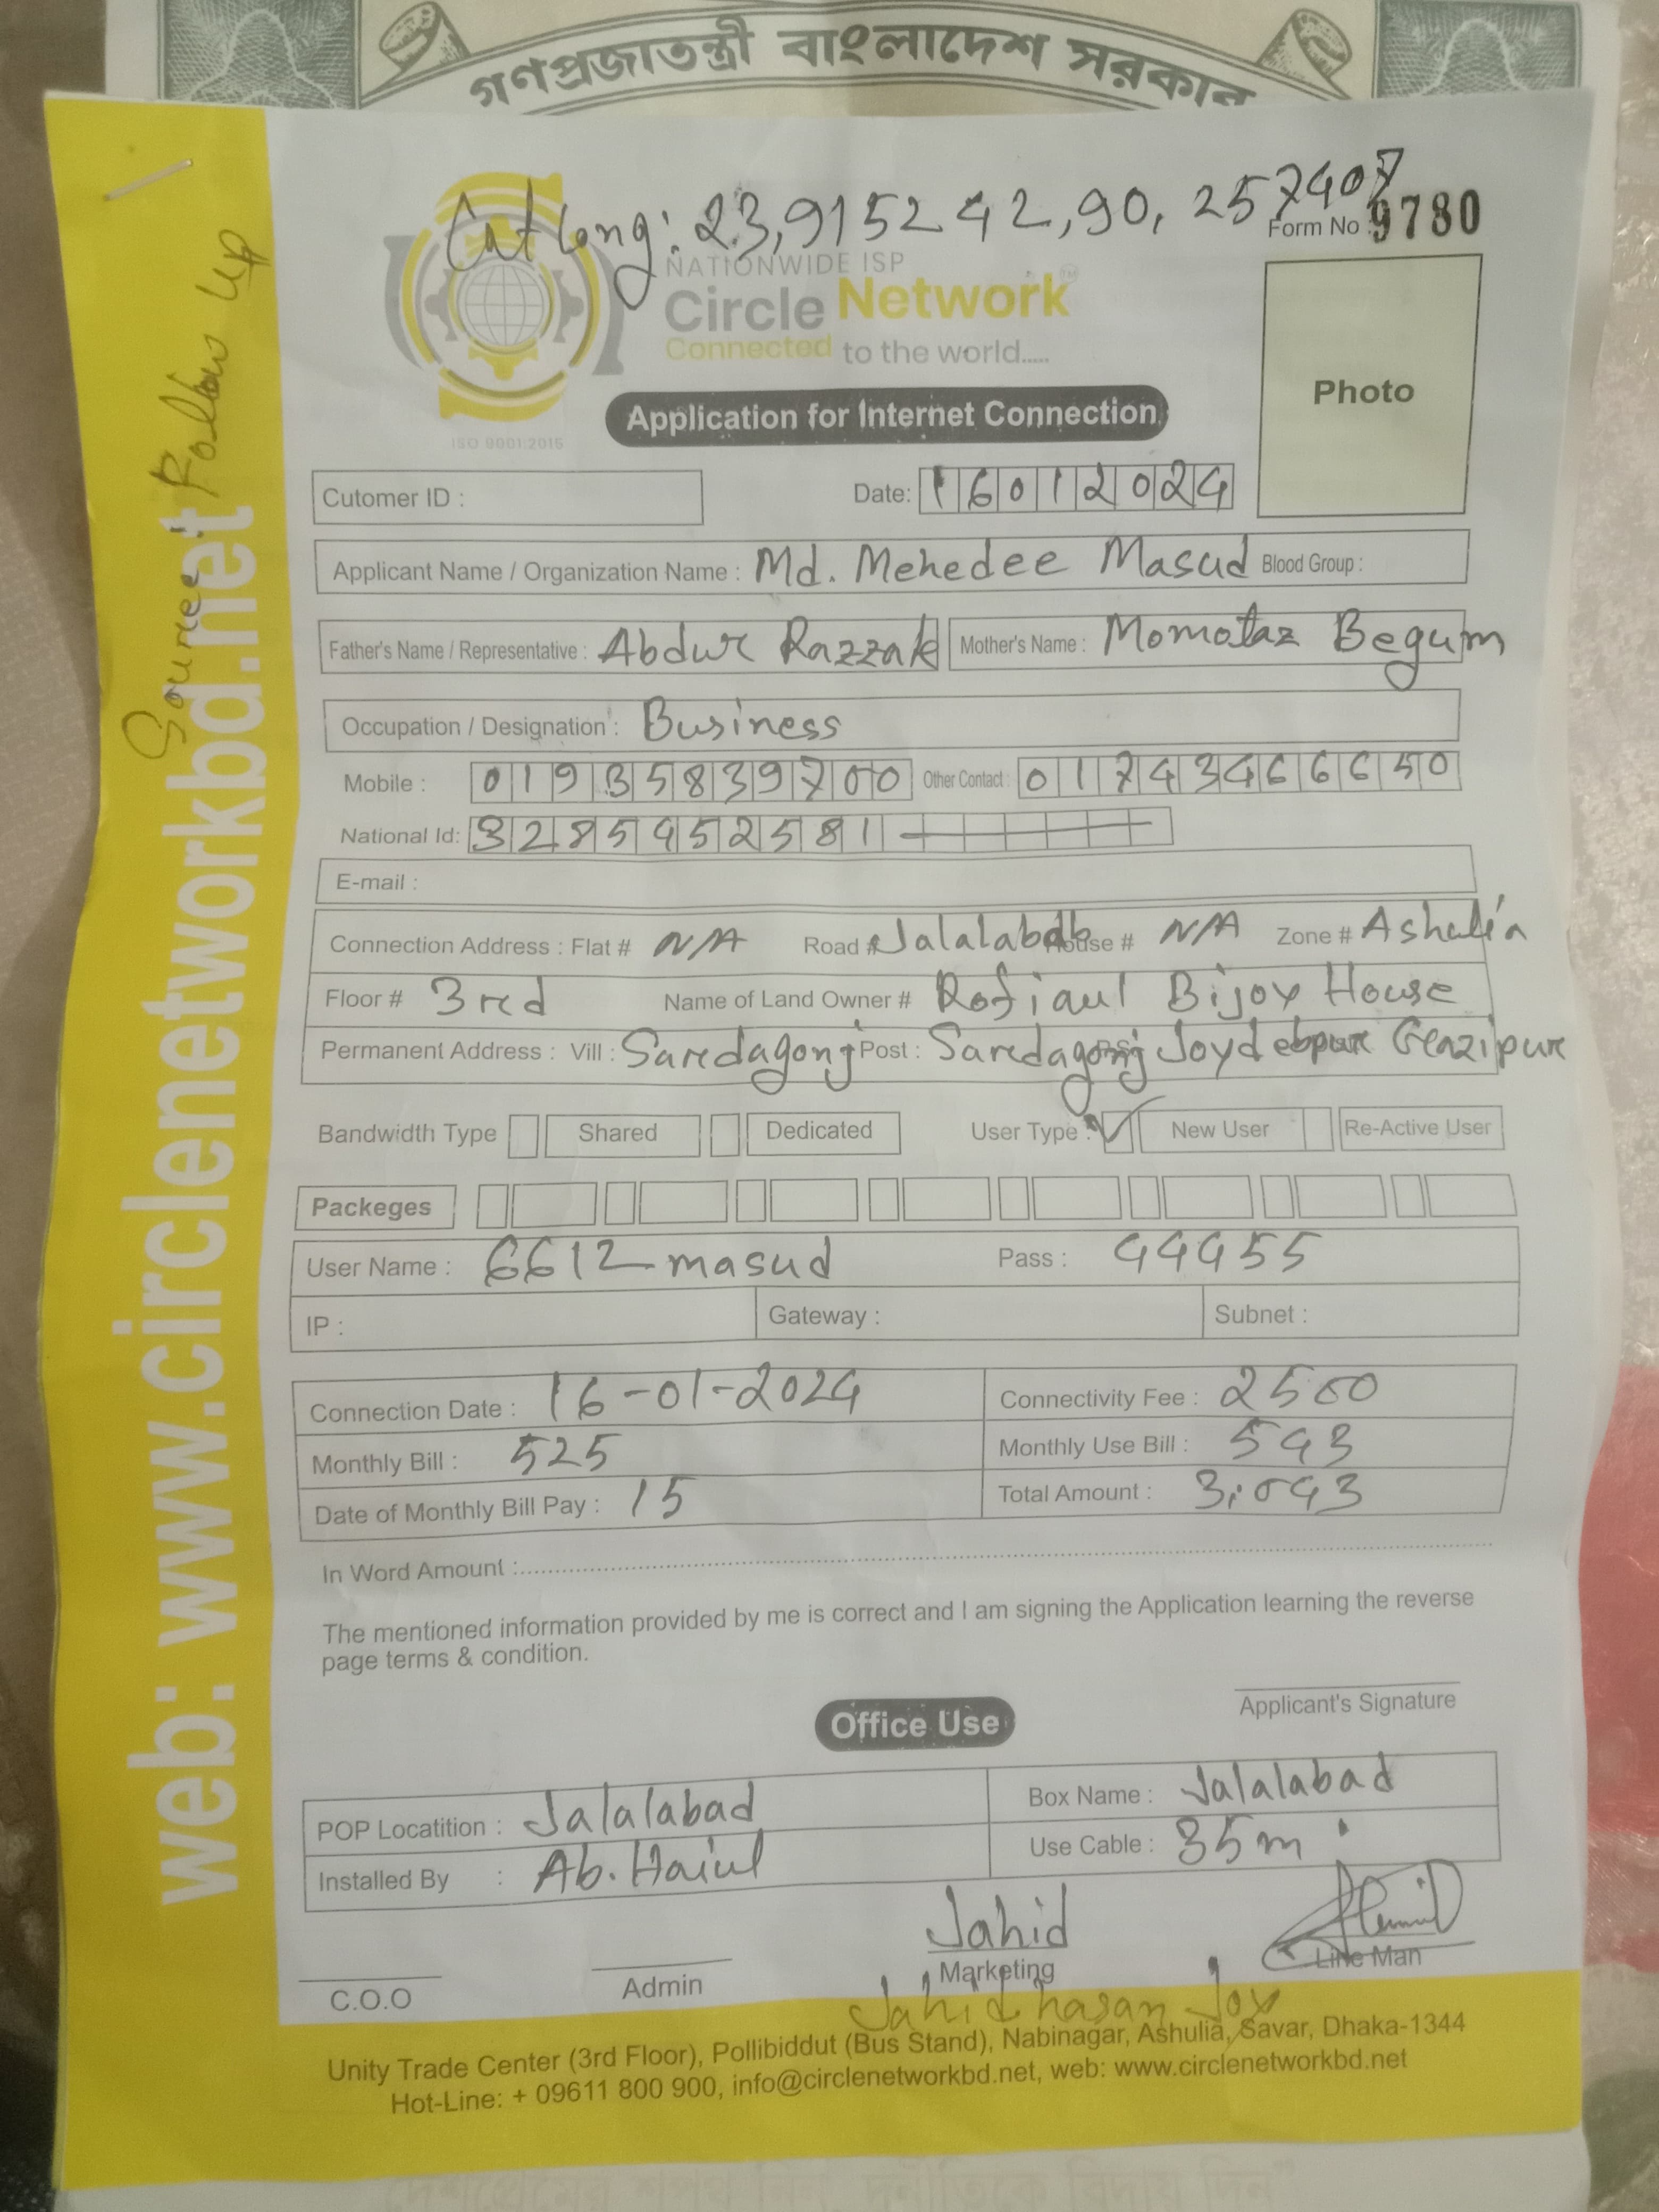 গণপ্রজাতন্ত্রী বাংলাদেশ সরকার
Cat Long: 23,9152 42,90, 257407
Form No : 9780
NATIONWIDE ISP
Circle Network™
Connected to the world.....
ISO 9001:2015
Photo
Application for Internet Connection
Cutomer ID :
Date: 16012024
Applicant Name / Organization Name : Md. Mehedee Masud Blood Group :
Father's Name / Representative : Abdur Razzak Mother's Name : Momotaz Begum
Occupation / Designation : Business
Mobile : 01935839700 Other Contact : 01743466650
National Id: 3285452581
E-mail :
Connection Address : Flat # N/A Road # Jalalabdb House # N/A Zone # Ashulia
Floor # 3rd Name of Land Owner # Rofiqul Bijoy House
Permanent Address : Vill : Sardagonj Post : Sardagonj Joydebpur Gazipur
Bandwidth Type Shared Dedicated User Type : New User Re-Active User
Packeges
User Name : 6612masud Pass : 44455
IP : Gateway : Subnet :
Connection Date : 16-01-2024 Connectivity Fee : 2500
Monthly Bill : 525 Monthly Use Bill : 543
Date of Monthly Bill Pay : 15 Total Amount : 3,043
In Word Amount :
The mentioned information provided by me is correct and I am signing the Application learning the reverse
page terms & condition.
Applicant's Signature
Office Use
POP Locatition : Jalalabad Box Name : Jalalabad
Installed By : Ab. Haiul Use Cable : 35m
Jahid
C.O.O Admin Marketing Line Man
Jahid hasan Joy
Unity Trade Center (3rd Floor), Pollibiddut (Bus Stand), Nabinagar, Ashulia, Savar, Dhaka-1344
Hot-Line: + 09611 800 900, info@circlenetworkbd.net, web: www.circlenetworkbd.net
web: www.circlenetworkbd.net
Source: Follow Up